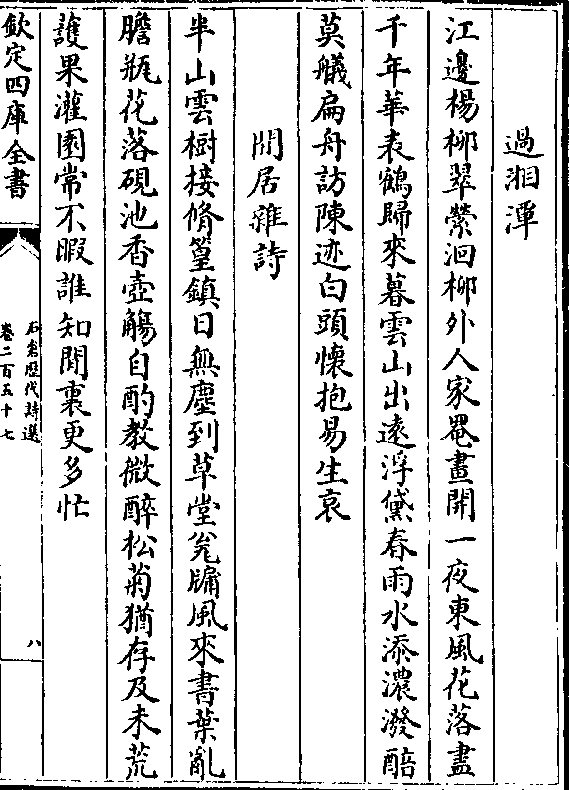 過湘潭
江邊楊柳翠縈洄柳外人家罨畫開一夜東風花落盡
千年華表鶴歸來暮雲山出遠浮黛春雨水添濃潑醅
莫艤扁舟訪陳迹白頭懷抱易生哀
閒居雜詩
半山雲樹接脩篁鎮日無塵到草堂瓮牖風來書葉亂
膽瓶花落硯池香壺觴自酌教微醉松菊猶存及未荒
護果灌園常不暇誰知閒裏更多忙
欽定四庫全書
石倉歷代詩選
卷二百五十七
八